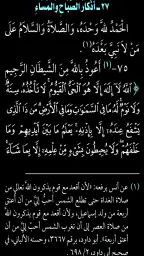 ٢٧ - أذكار الصباح والمساء
الْحَمْدُ للَّهِ وَحْدَهُ، وَالصَّلَاةُ وَالسَّلَامُ عَلَى
مَنْ لَا نَبِيَّ بَعْدَهُ (١)
٧٥ – (١) أَعُوذُ بِاللَّهِ مِنَ الشَّيطَانِ الرَّجِيمِ
﴿اللَّهُ لَا إِلَهَ إِلَّا هُوَ الْحَيُّ الْقَيُّومُ لَا تَأْخُذُهُ سِنَةٌ
وَلَا نَوْمٌ لَّهُ مَا فِي السَّمَاوَاتِ وَمَا فِي الْأَرْضِ مَن ذَا الَّذِي
يَشْفَعُ عِندَهُ إِلَّا بِإِذْنِهِ يَعْلَمُ مَا بَيْنَ أَيْدِيهِمْ وَمَا
خَلْفَهُمْ وَلَا يُحِيطُونَ بِشَيْءٍ مِّنْ عِلْمِهِ إِلَّا بِمَا شَاءَ
(١) عن أنس يرفعه: «لأن أقعد مع قوم يذكرون الله تعالى من
صلاة الغداة حتى تطلع الشمس أحب إليَّ من أن أعتق
أربعة من ولد إسماعيل، ولأن أقعد مع قوم يذكرون الله
من صلاة العصر إلى أن تغرب الشمس أحب إليَّ من أن
أعتق أربعة». أبو داود، برقم ٣٦٦٧، وحسنه الألباني، في
صحيح أبي داود، ٢/ ٦٩٨.